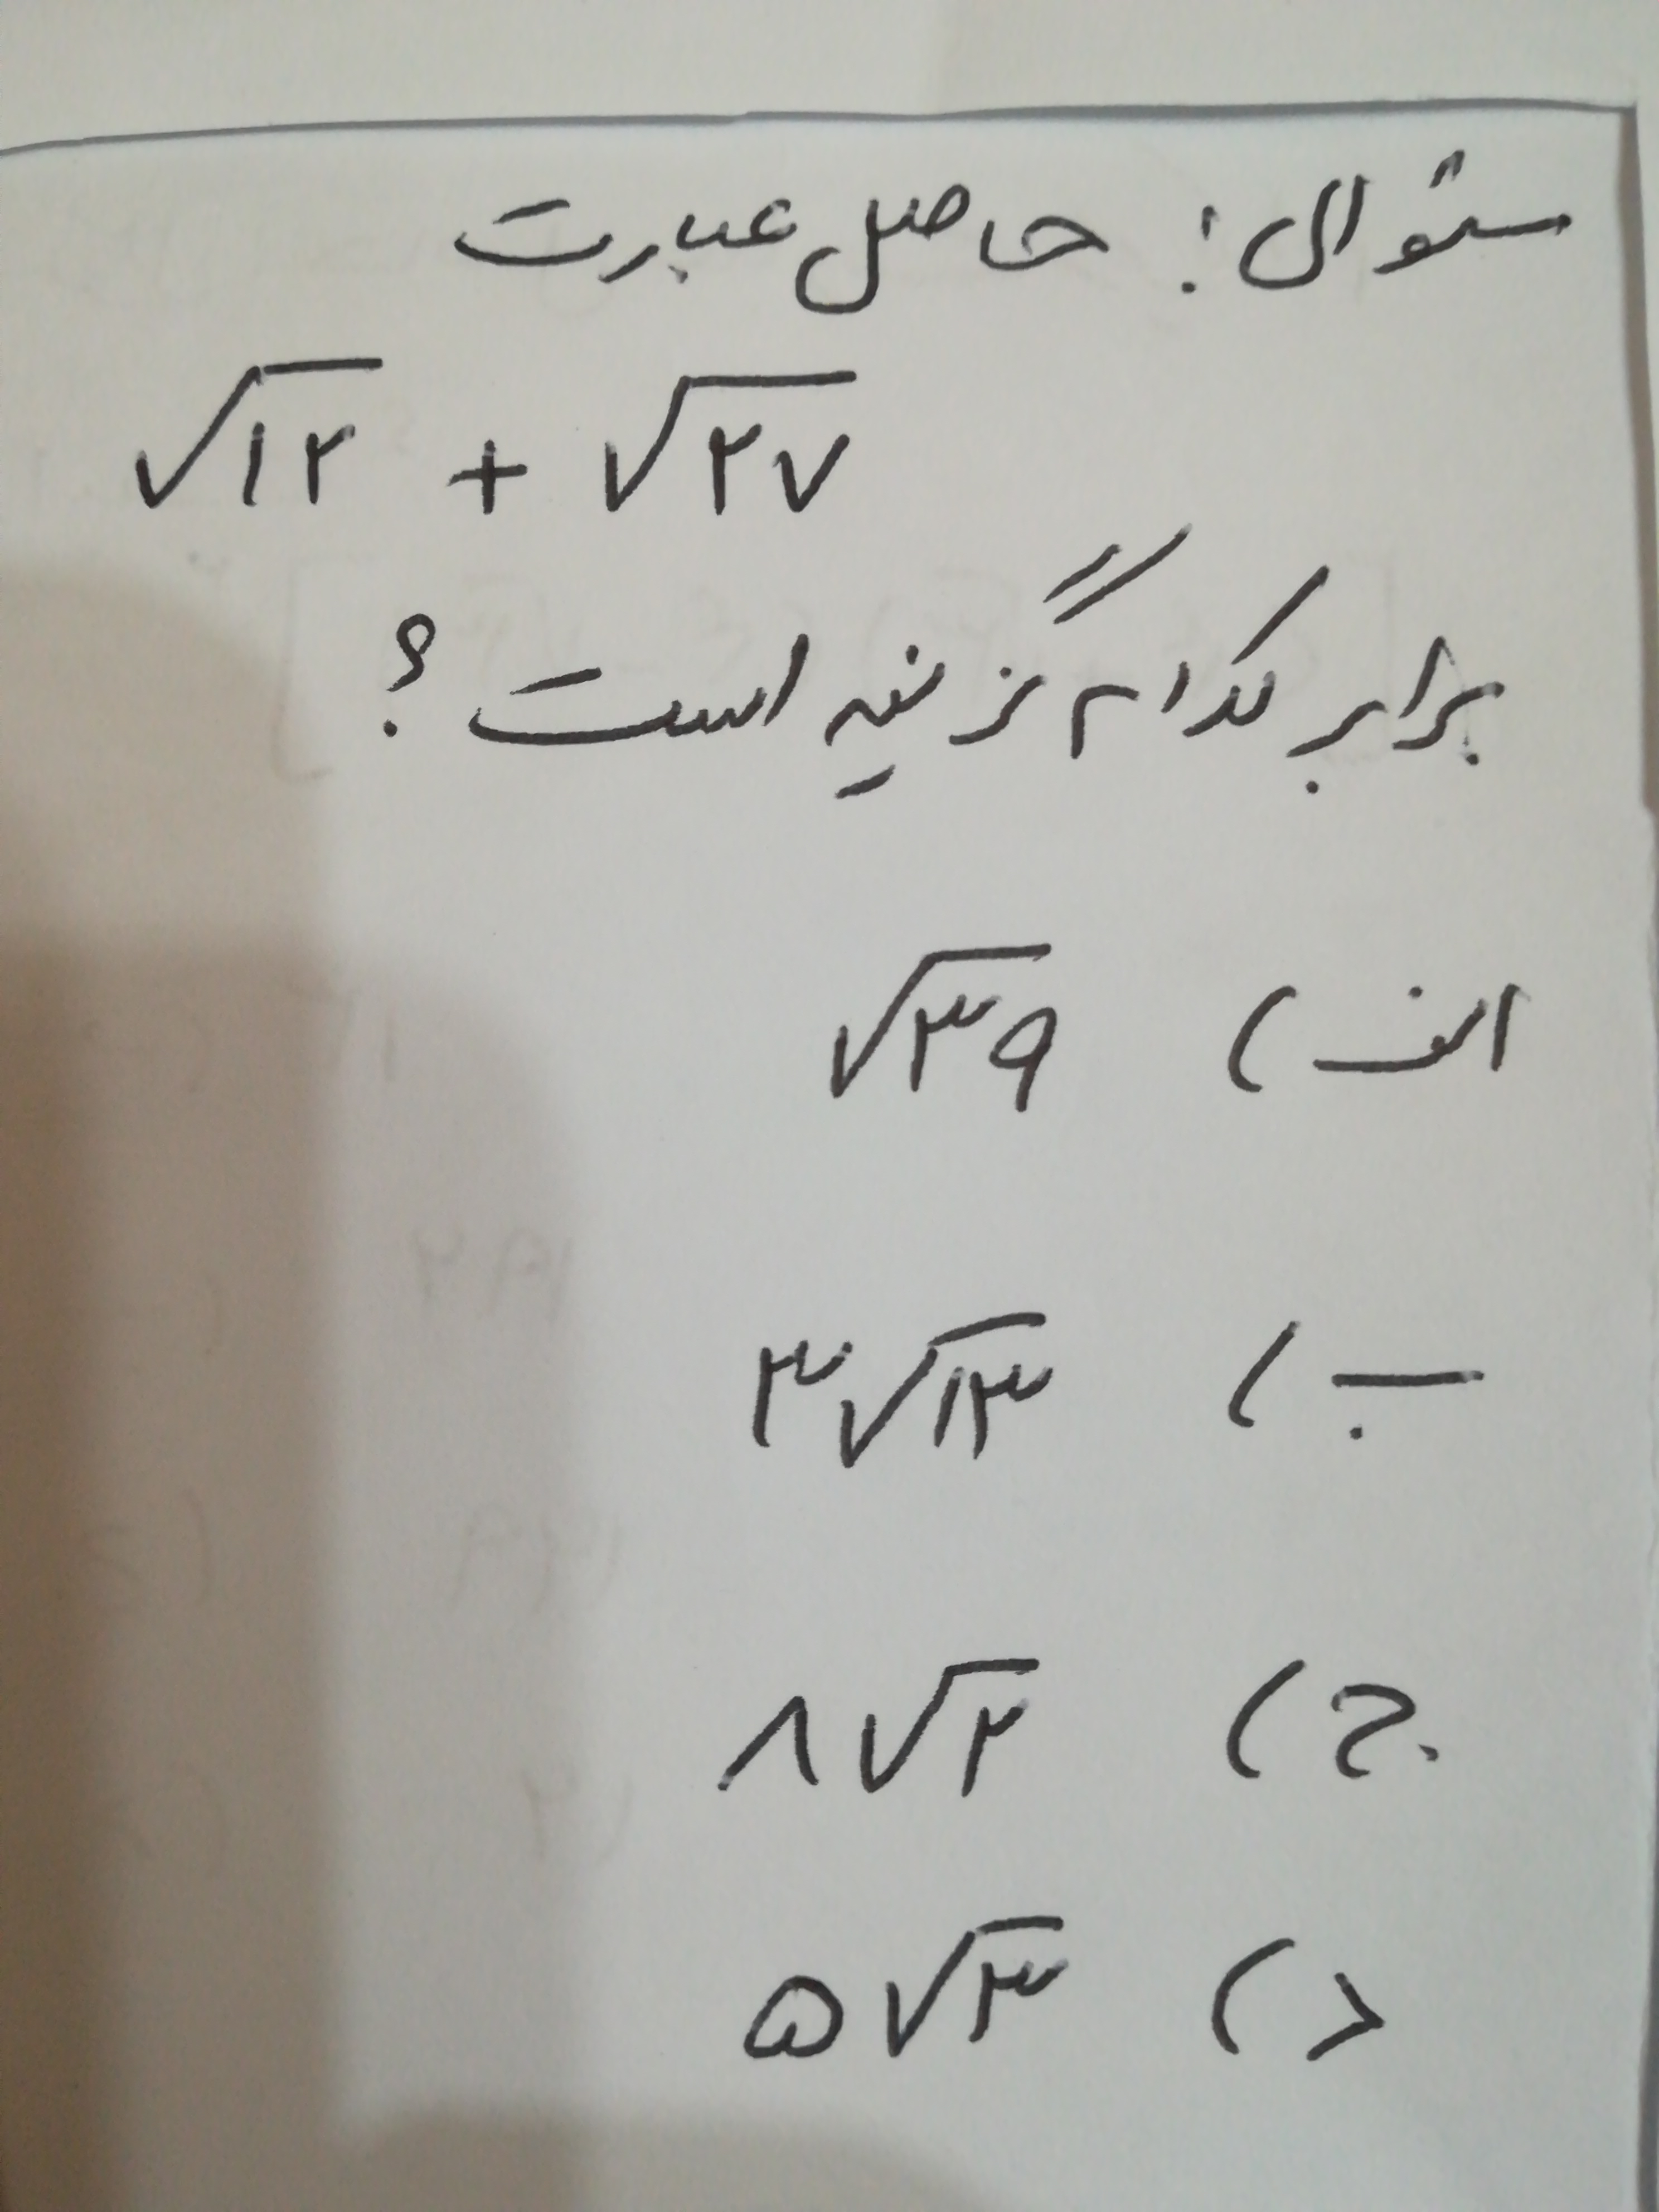 سئوال: حاصل عبارت
√۱۲ + √۲۷
برابر کدام گزینه است؟
الف) √۳۹
ب) ۳√۱۳
ج) ۸√۲
د) ۵√۳